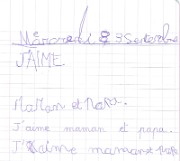 Mercredi 3 Septembre
J'AIME.
MaMan et PaPa.
J'aime maman et papa.
J'aime maman papa